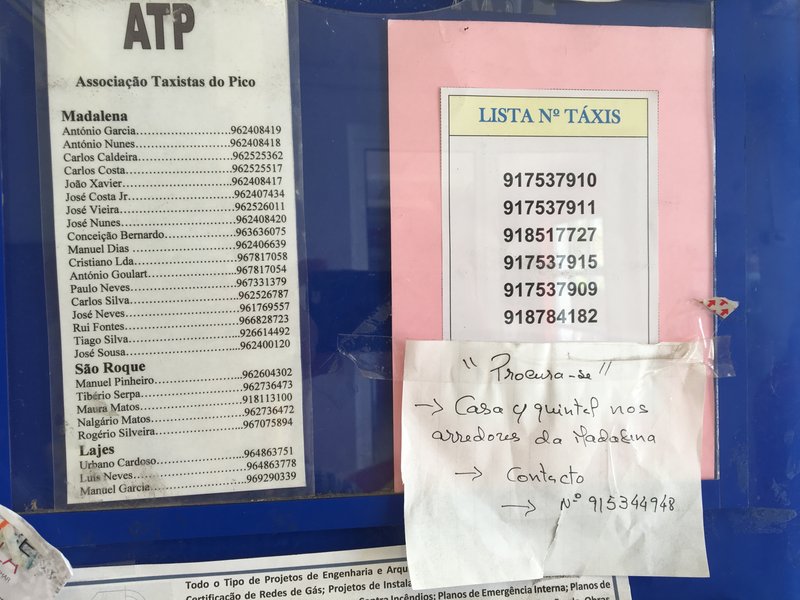 ATP
Associação Taxistas do Pico
Madalena
António Garcia.....................962408419
António Nunes.....................962408418
Carlos Caldeira.....................962525362
Carlos Costa.........................962525517
João Xavier..........................962408417
José Costa Jr........................962407434
José Vieira...........................962526011
José Nunes...........................962408420
Conceição Bernardo..............963636075
Manuel Dias ........................962406639
Cristiano Lda.......................967817058
António Goulart...................967817054
Paulo Neves.........................967331379
Carlos Silva.........................962526787
José Neves...........................961769557
Rui Fontes...........................966828723
Tiago Silva...........................926614492
José Sousa...........................962400120
São Roque
Manuel Pinheiro...................962604302
Tibério Serpa........................962736473
Maura Matos........................918113100
Nalgário Matos.....................962736472
Rogério Silveira....................967075894
Lajes
Urbano Cardoso....................964863751
Luis Neves...........................964863778
Manuel Garcia......................969290339
LISTA Nº TÁXIS
917537910
917537911
918517727
917537915
917537909
918784182
"Procura-se"
→ Casa c/ quintal nos
arredores da Madalena
→ Contacto
→ Nº 915344948
Todo o Tipo de Projetos de Engenharia e
Certificação de Redes de Gás; Projetos de
Contra Incêndios; Planos de Emergência Interna; Planos de
Obras